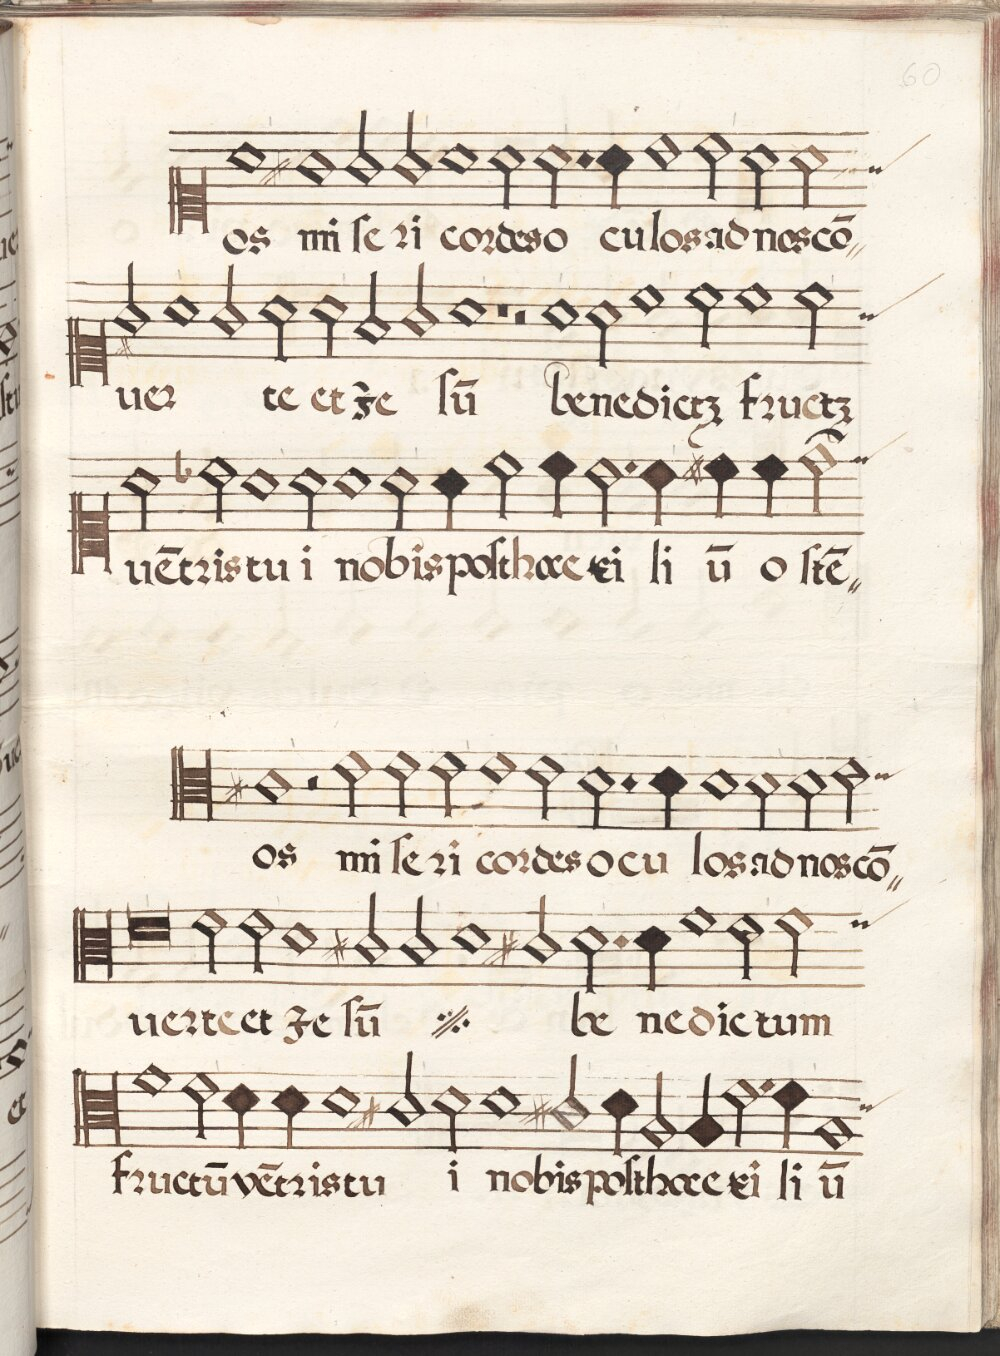 60
os mi se ri cordes o culos ad nos cō
uer te et Je sū benedictꝫ fructꝫ
uētris tu i nobis post hoc exi li ū o stē
os mi se ri cordes o cu los ad nos cō
uerte et Je sū be nedictum
fructū vētris tu i nobis post hoc exi li ū